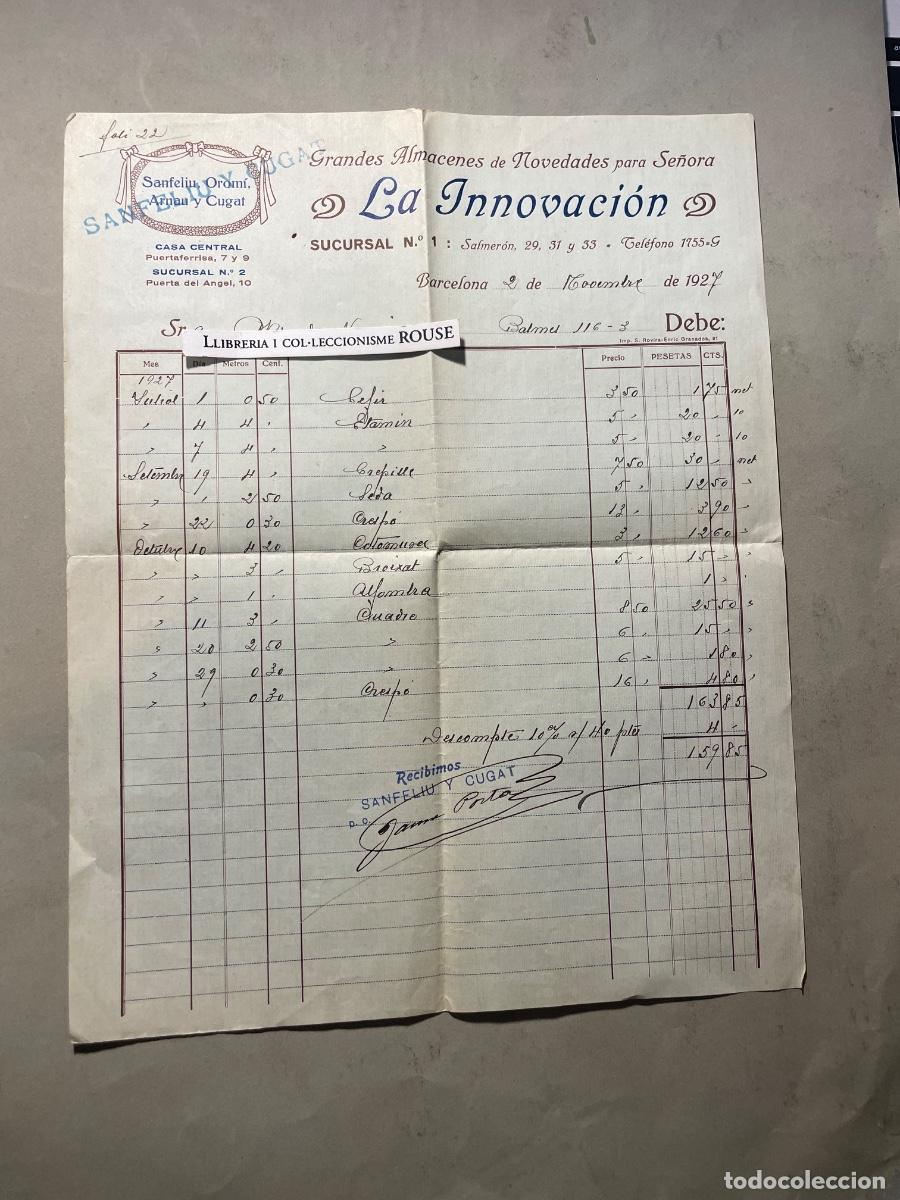 foli 22
SANFELIU Y CUGAT
Sanfeliu, Oromí,
Arnau y Cugat
CASA CENTRAL
Puertaferrisa, 7 y 9
SUCURSAL N.º 2
Puerta del Angel, 10
Grandes Almacenes de Novedades para Señora
La Innovación
SUCURSAL N.º 1 : Salmerón, 29, 31 y 33 • Teléfono 1755-G
Barcelona 2 de Novembre de 1927
Sr Balmes 116-3 Debe:
LLIBRERIA I COL·LECCIONISME ROUSE
Imp. S. Rovira-Enric Granados, 91
Mes Día Metros Cent. Precio PESETAS CTS.
1927
Juliol 1 0 50 Cefir 3 50 1 75 net
" 4 4 " Etamin 5 " 20 " 10
" 7 4 " " 5 " 20 " 10
Setembre 19 4 " Crepille 7 50 30 " net
" " 2 50 Seda 5 " 12 50 "
" 22 0 30 Crespó 13 " 3 90 "
Octubre 10 4 20 3 " 12 60 "
" " 3 " Broixat 5 " 15 " "
" " 1 " Alfombra 1 " "
" 11 3 " Quadro 8 50 25 50 "
" 20 2 50 " 6 " 15 " "
" 29 0 30 " 6 " 1 80 "
" " 0 30 Crespó 16 " 4 80 "
163 85
Descompte 10% s/ 40 ptes 4 "
159 85
Recibimos
SANFELIU Y CUGAT
P. O.
Jaume Porta
todocoleccion